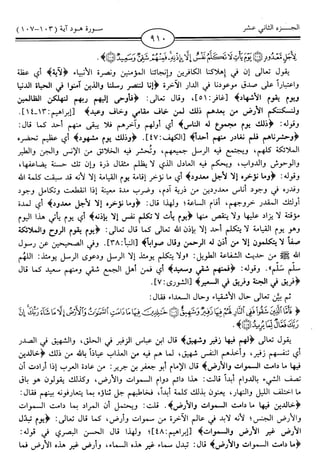 الجــزء الثاني عشر
٩١٠
سـورة هـود آية (١٠٣-١٠٧)
لِأَجَلٍ مَّعْدُودٍ يَوْمَ يَأْتِ لَا تَكَلَّمُ نَفْسٌ إِلَّا بِإِذْنِهِ فَمِنْهُمْ شَقِيٌّ وَسَعِيدٌ
يقول تعالى إن في إهلاكنا الكافرين وإنجائنا المؤمنين ونصرة الأنبياء ﴿لآية﴾ أي عظة
واعتباراً على صدق موعودنا في الدار الآخرة ﴿إنا لننصر رسلنا والذين آمنوا في الحياة الدنيا
ويوم يقوم الأشهاد﴾ [غافر:٥١]، وقال تعالى: ﴿فأوحى إليهم ربهم لنهلكن الظالمين
ولنسكننكم الأرض من بعدهم ذلك لمن خاف مقامي وخاف وعيد﴾ [إبراهيم:١٣-١٤].
وقوله: ﴿ذلك يوم مجموع له الناس﴾ أي أولهم وآخرهم فلا يبقى منهم أحد كما قال:
﴿وحشرناهم فلم نغادر منهم أحداً﴾ [الكهف:٤٧]. ﴿وذلك يوم مشهود﴾ أي عظيم تحضره
الملائكة كلهم، ويجتمع فيه الرسل جميعهم، وتُحشر فيه الخلائق من الإنس والجن والطير
والوحوش والدواب، ويحكم فيه العادل الذي لا يظلم مثقال ذرة وإن تك حسنة يضاعفها.
وقوله: ﴿وما نؤخره إلا لأجل معدود﴾ أي ما نؤخر إقامة يوم القيامة إلا لأنه قد سبقت كلمة الله
وقدره في وجود أناس معدودين من ذرية آدم، وضرب مدة معينة إذا انقطعت وتكامل وجود
أولئك المقدر خروجهم، أقام الساعة؛ ولهذا قال: ﴿وما نؤخره إلا لأجل معدود﴾ أي لمدة
مؤقتة لا يزاد عليها ولا ينقص منها ﴿يوم يأت لا تكلم نفس إلا بإذنه﴾ أي يوم يأتي هذا اليوم
وهو يوم القيامة لا يتكلم أحد إلا بإذن الله تعالى كما قال تعالى: ﴿يوم يقوم الروح والملائكة
صفاً لا يتكلمون إلا من أذن له الرحمن وقال صواباً﴾ [النبأ:٣٨]. وفي الصحيحين عن رسول
الله ﷺ من حديث الشفاعة الطويل: «ولا يتكلم يومئذ إلا الرسل ودعوى الرسل يومئذ: اللهم
سلم سلم». وقوله: ﴿فمنهم شقي وسعيد﴾ أي فمن أهل الجمع شقي ومنهم سعيد كما قال
﴿فريق في الجنة وفريق في السعير﴾ [الشورى:٧].
ثم بيَّن تعالى حال الأشقياء وحال السعداء فقال:
فَأَمَّا الَّذِينَ شَقُوا فَفِي النَّارِ لَهُمْ فِيهَا زَفِيرٌ وَشَهِيقٌ خَالِدِينَ فِيهَا مَا دَامَتِ السَّمَاوَاتُ وَالْأَرْضُ إِلَّا مَا شَاءَ رَبُّكَ إِنَّ
رَبَّكَ فَعَّالٌ لِّمَا يُرِيدُ
يقول تعالى ﴿لهم فيها زفير وشهيق﴾ قال ابن عباس الزفير في الحلق، والشهيق في الصدر
أي تنفسهم زفير، وأخذهم النفس شهيق، لما هم فيه من العذاب عياذاً بالله من ذلك ﴿خالدين
فيها ما دامت السموات والأرض﴾ قال الإمام أبو جعفر بن جرير: من عادة العرب إذا أرادت أن
تصف الشيء بالدوام أبداً قالت: هذا دائم دوام السموات والأرض، وكذلك يقولون هو باق
ما اختلف الليل والنهار، يعنون بذلك كلمة أبداً، فخاطبهم جل ثناؤه بما يتعارفونه بينهم فقال:
﴿خالدين فيها ما دامت السموات والأرض﴾. قلت: ويحتمل أن المراد بما دامت السموات
والأرض الجنس؛ لأنه لابد في عالم الآخرة من سموات وأرض، كما قال تعالى: ﴿يوم تبدل
الأرض غير الأرض والسموات﴾ [إبراهيم:٤٨]؛ ولهذا قال الحسن البصري في قوله:
﴿ما دامت السموات والأرض﴾ قال: تبدل سماء غير هذه السماء، وأرض غير هذه الأرض فما